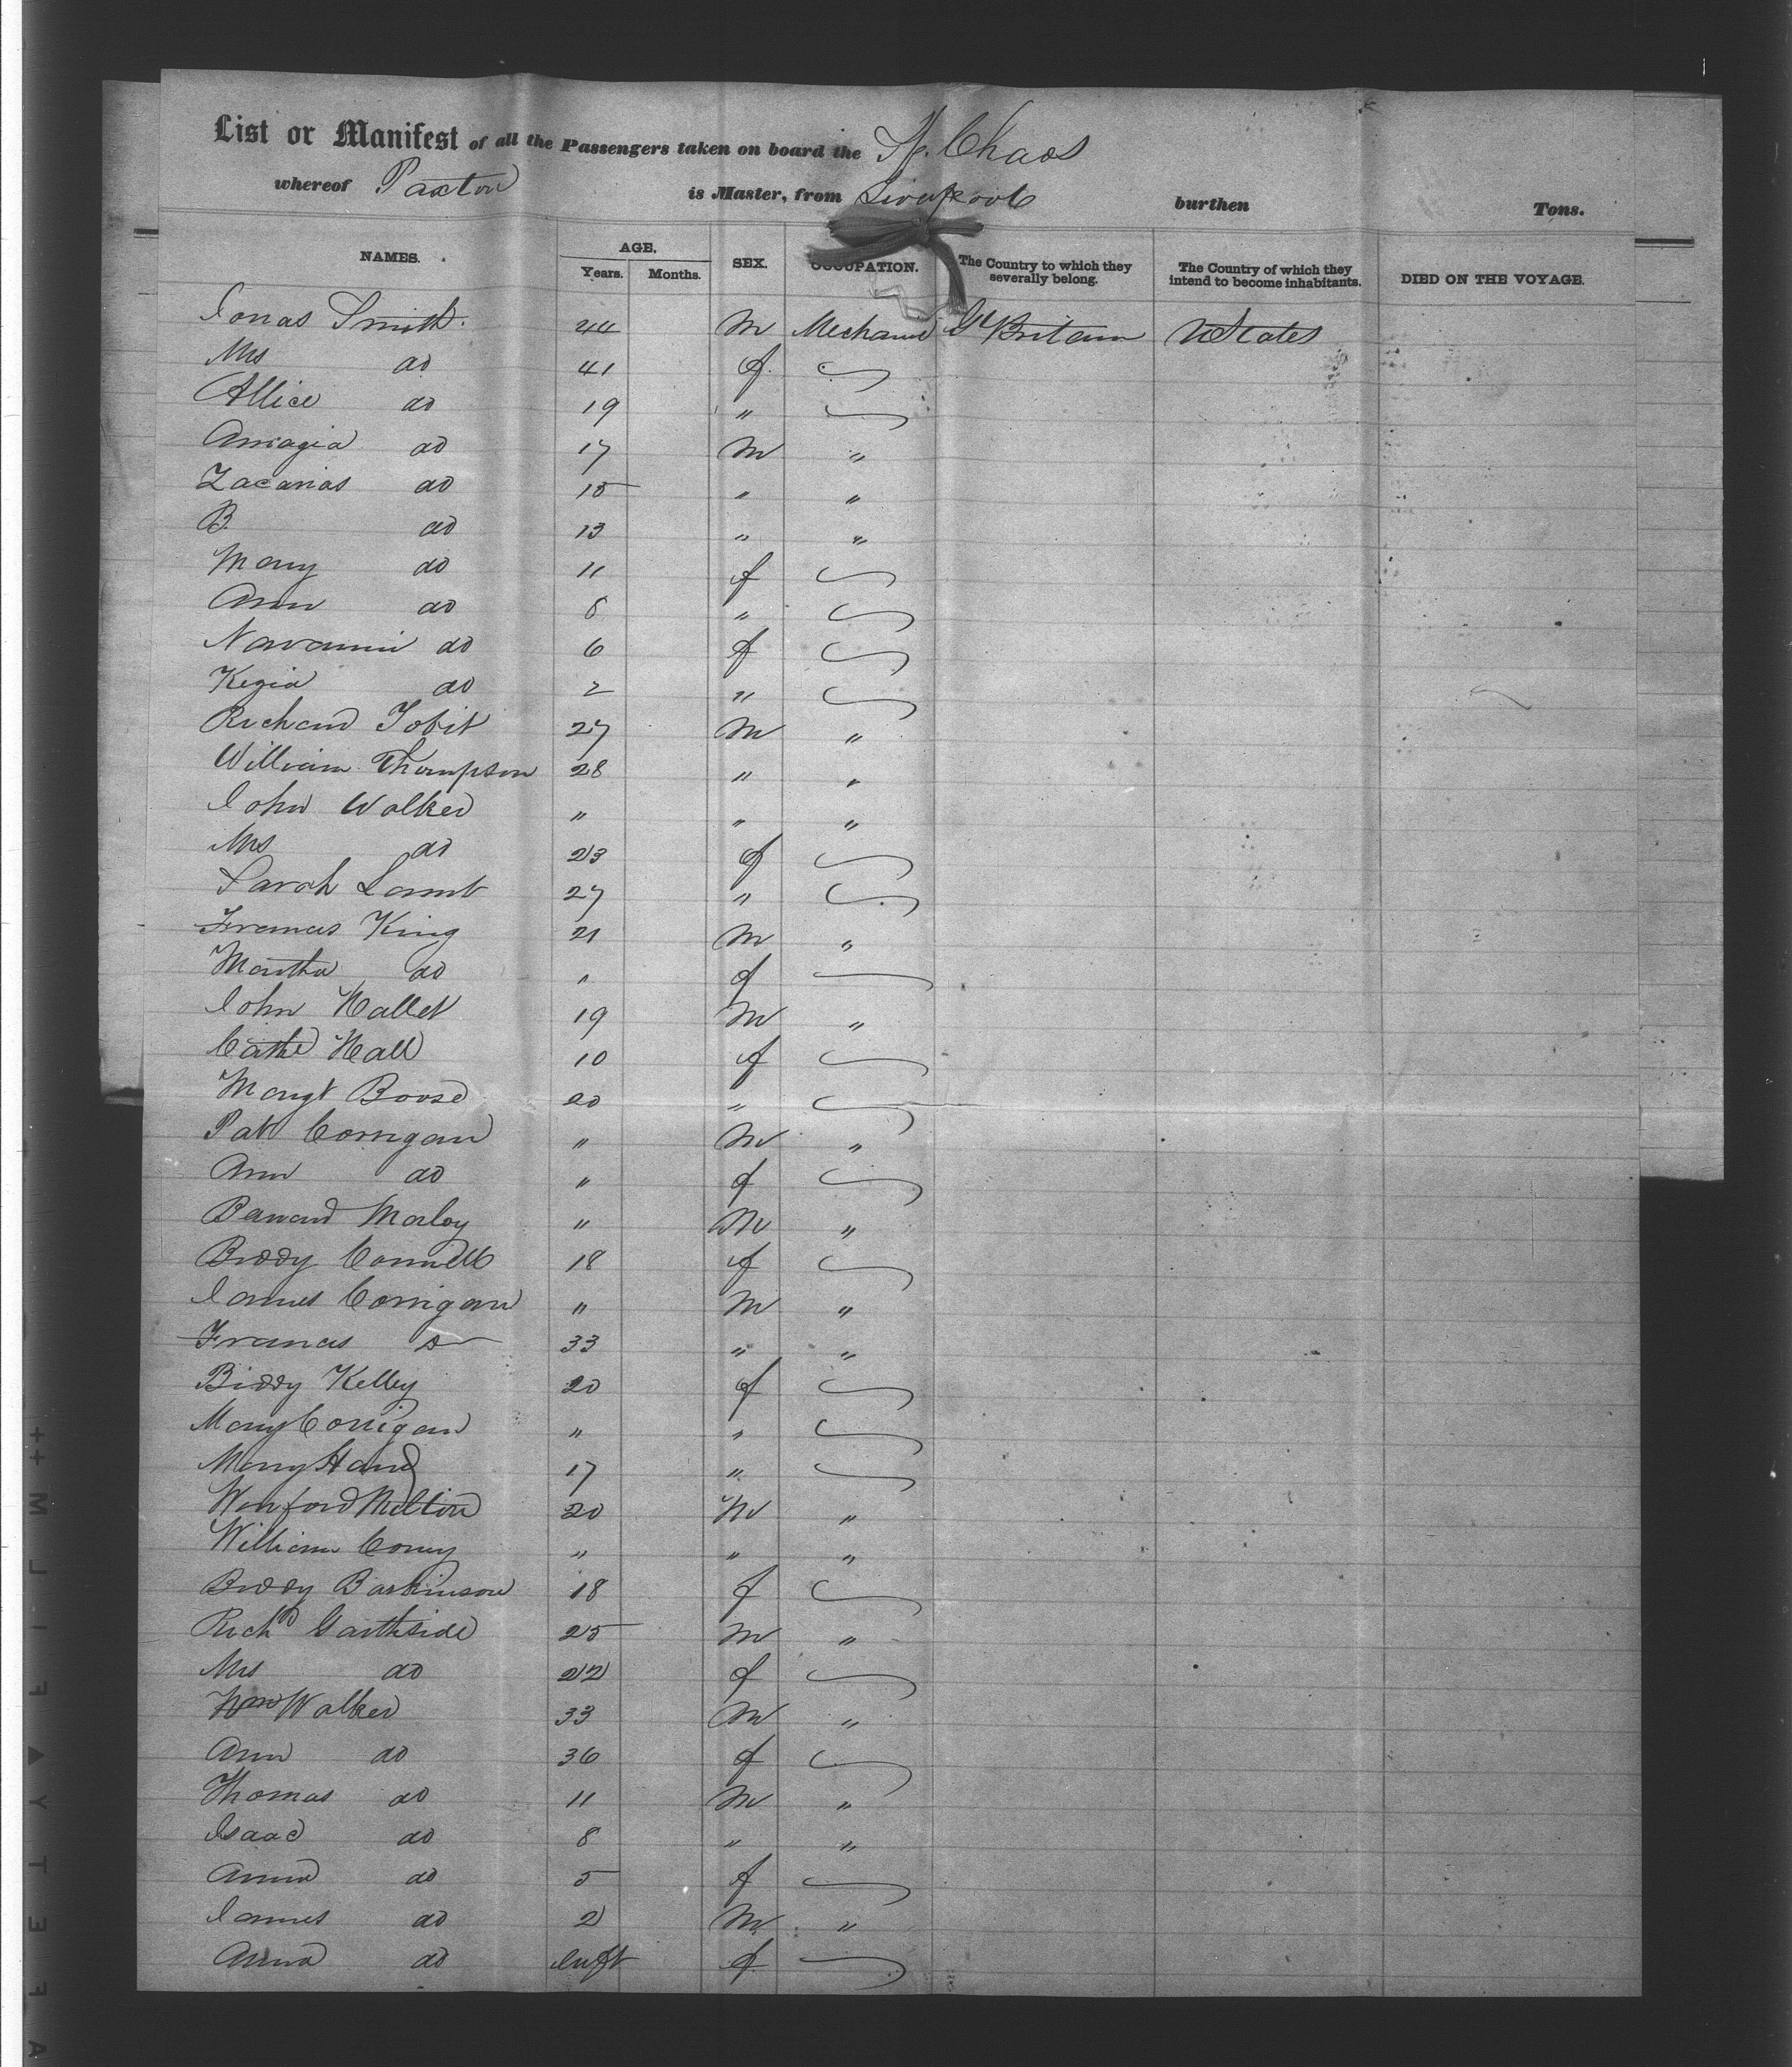 List or Manifest of all the Passengers taken on board the Sp. Chaos
whereof Paxton is Master, from Liverpool burthen Tons.
NAMES. AGE. SEX. OCCUPATION. The Country to which they severally belong. The Country of which they intend to become inhabitants. DIED ON THE VOYAGE.
Years. Months.
Jonas Smith 44 M Mechanic Gt Britain U States
Mrs do 41 f
Allice do 19 "
Amagia do 17 M "
Zacarias do 15 " "
B. do 13 " "
Mary do 11 f
Ann do 8 "
Navaumi do 6 f
Kezia do 2 "
Richard Tobit 27 M "
William Thompson 28 " "
John Walker " " "
Mrs do 23 f
Sarah Lamb 27 "
Frances King 21 M "
Martha do " f
John Hallet 19 M "
Cathe Hall 10 f
Margt Boose 20 "
Pat Corrigan " M "
Ann do " f
Barnard Morley " M "
Biddy Connell 18 f
James Corrigan " M "
Francis Do 33 " "
Biddy Kelley 20 f
Mary Corrigan " "
Mary Hand 17 "
Winford Melton 20 M "
William Coney " " "
Biddy Barkinson 18 f
Richd Garthside 25 M "
Mrs do 22 f
Wm Walker 33 M "
Ann do 36 f
Thomas do 11 M "
Isaac do 8 " "
Anna do 5 f
James do 2 M "
Anna do Inft f